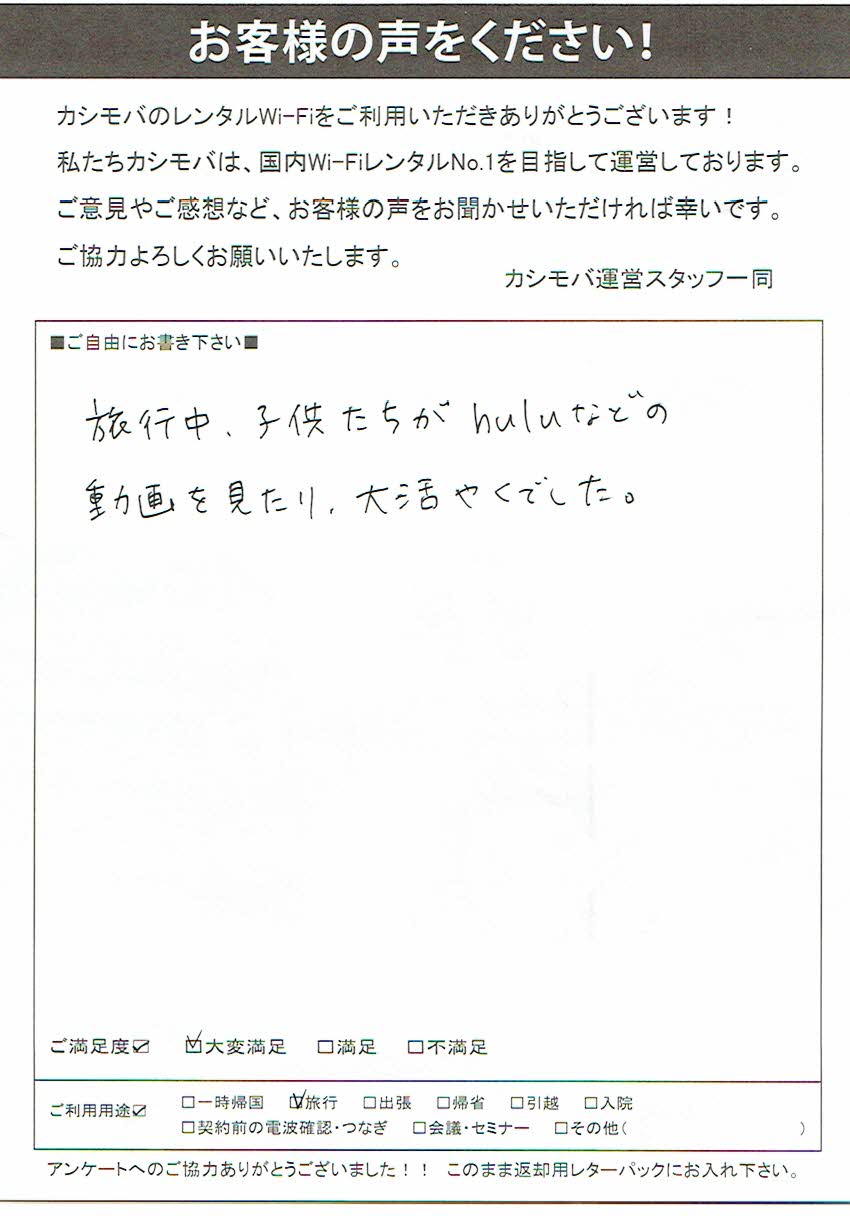 お客様の声をください!
カシモバのレンタルWi-Fiをご利用いただきありがとうございます!
私たちカシモバは、国内Wi-FiレンタルNo.1を目指して運営しております。
ご意見やご感想など、お客様の声をお聞かせいただければ幸いです。
ご協力よろしくお願いいたします。
カシモバ運営スタッフ一同
■ご自由にお書き下さい■
旅行中、子供たちがhuluなどの
動画を見たり、大活やくでした。
ご満足度☑ ☑大変満足 □満足 □不満足
ご利用用途☑ □一時帰国 ☑旅行 □出張 □帰省 □引越 □入院
□契約前の電波確認・つなぎ □会議・セミナー □その他( )
アンケートへのご協力ありがとうございました!! このまま返却用レターパックにお入れ下さい。